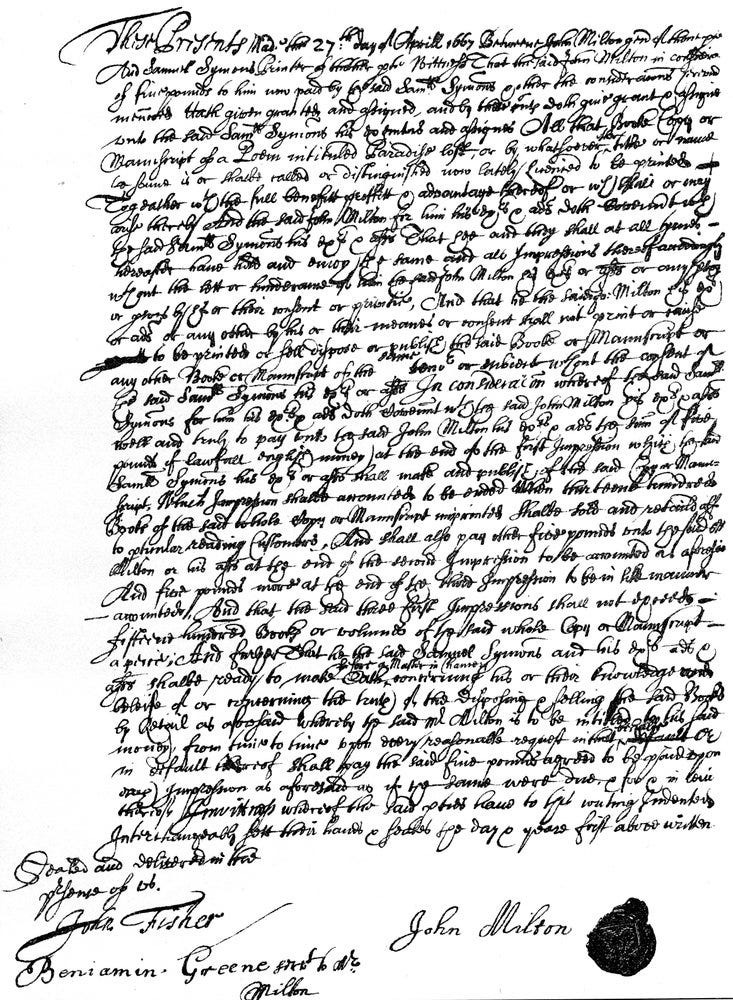 These Presents Made the 27th day of Aprill 1667 Betweene John Milton gent of thone pte
And Samuel Symons Printer of thother pte Witness That the said John Milton in considerac̃on
of five pounds to him now paid by the said Samll Symons & other the considerac̃ons herein
menc̃oned Hath given granted and assigned, and by these pnts doth give grant & assigne
unto the said Samll Symons his executors and assignes All that Booke Copy or
Manuscript of a Poem intituled Paradise lost, or by whatsoever other title or name
the same is or shalbe called or distinguished now lately Licenced to be printed
Together wth the full benefitt proffitt & advantage thereof or wch shall or may
arise thereby And the said John Milton for him his exrs & ads doth Covenant wth
the said Samll Symons his exrs & assns That hee and they shall at all tymes
hereafter have hold and enjoy the same and all Impressions thereof accordingly
without the lett or hinderance of him the said John Milton his exrs or assns or any other
or psons by his or their consent or privitie, And that he the said Jo: Milton his exrs
or ads or any other by his or their meanes or consent shall not print or cause
to be printed or sell dispose or publish the said Booke or Manuscript or
any other Booke or Manuscript of the same tenor or subiect without the consent of
the said Samll Symons his exrs or assns In considerac̃on whereof the said Samll
Symons for him his exrs & ads doth Covenant wth the said John Milton his exrs & assns
well and truly to pay unto the said John Milton his exrs & ads the sum of five
pounds of lawfull english money at the end of the first Impression which the said
Samll Symons his exrs or assns shall make and publish of the said Copy or Manu-
script, Which Impression shalbe accounted to be ended when thirteene hundred
Books of the said whole Copy or Manuscript imprinted shalbe sold and retaild off
to pticular reading Customers, And shall also pay other five pounds unto the said Mr
Milton or his assns at the end of the second Impression to be accounted as aforesaid
And five pounds more at the end of the third Impression to be in like manner
accounted, And that the said three first Impressions shall not exceed
fifteene hundred Books or volumes of the said whole Copy or Manuscript
a peice, And further That he the said Samuel Symons and his exrs ads &
assns shalbe ready to make Oath before a Master in Chancery concerning his or their knowledge and
beleise of or concerning the truth of the disposing & selling the said Books
by Retail as aforesaid whereby the said Mr Milton is to be intitled to his said
money from time to time upon every reasonable request in that behalfe or
in default thereof shall pay the said five pounds agreed to be paid upon
each Impression as aforesaid as if the same were due & for & in lieu
thereof In witness whereof the said pties have to this writing indented
Interchangeably sett their hands & seales the day & yeare first above written
Sealed and delivered in the
psence of us.
John Fisher
John Milton
Benjamin Greene servt to Mr
Milton